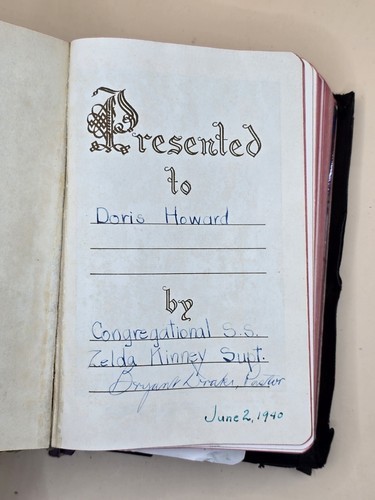 Presented
to
Doris Howard
by
Congregational S.S.
Zelda Kinney Supt.
Bryant Drake, Pastor
June 2, 1940